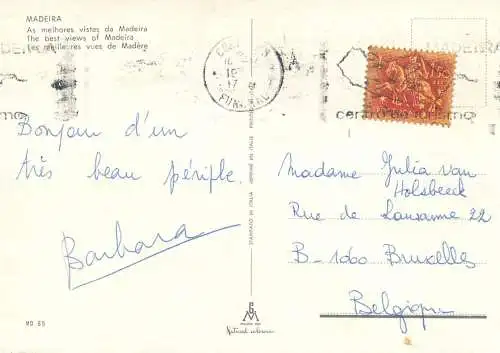 MADEIRA
As melhores vistas da Madeira
The best views of Madeira
Les meilleures vues de Madère
FUNCHAL
centro de turismo
Bonjour d'un
très beau périple.
Barbara
Madame Julia van
Holsbeeck
Rue de Lausanne 22
B-1060 Bruxelles
Belgique
STAMPATO IN ITALIA
MD 65